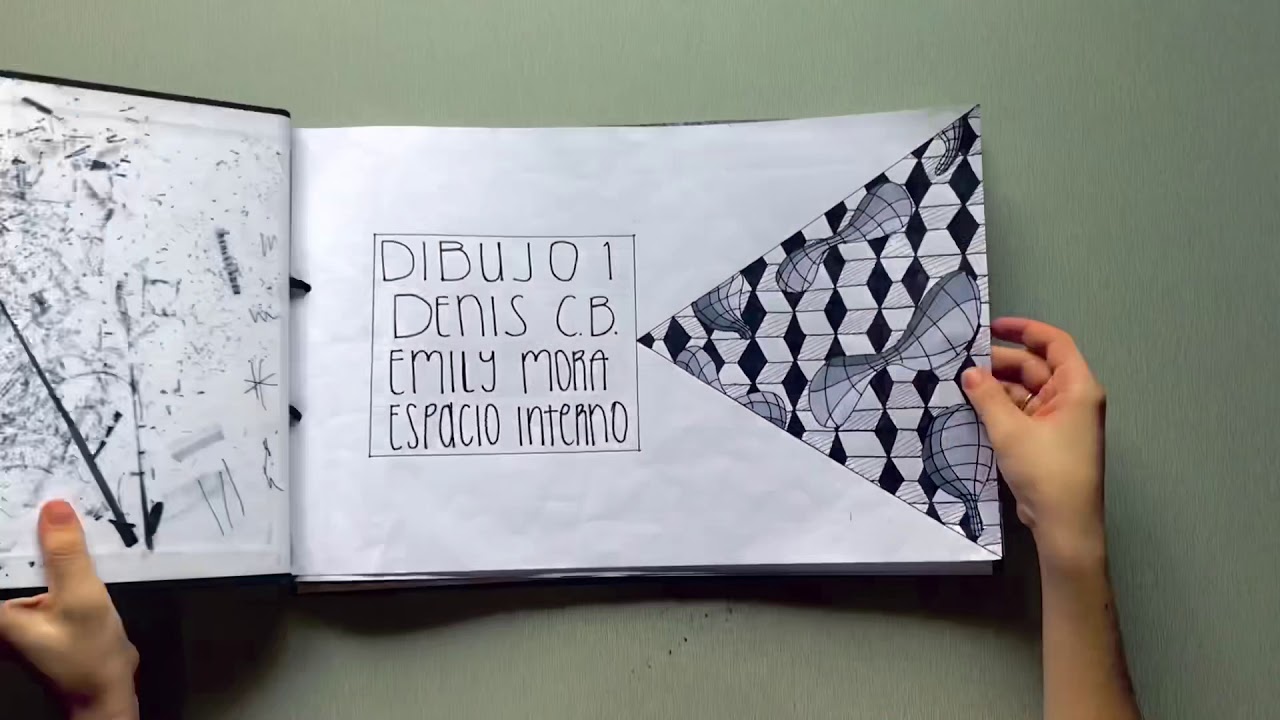 DIBUJO 1
DENIS C.B.
EMILY MORA
ESPACIO INTERNO